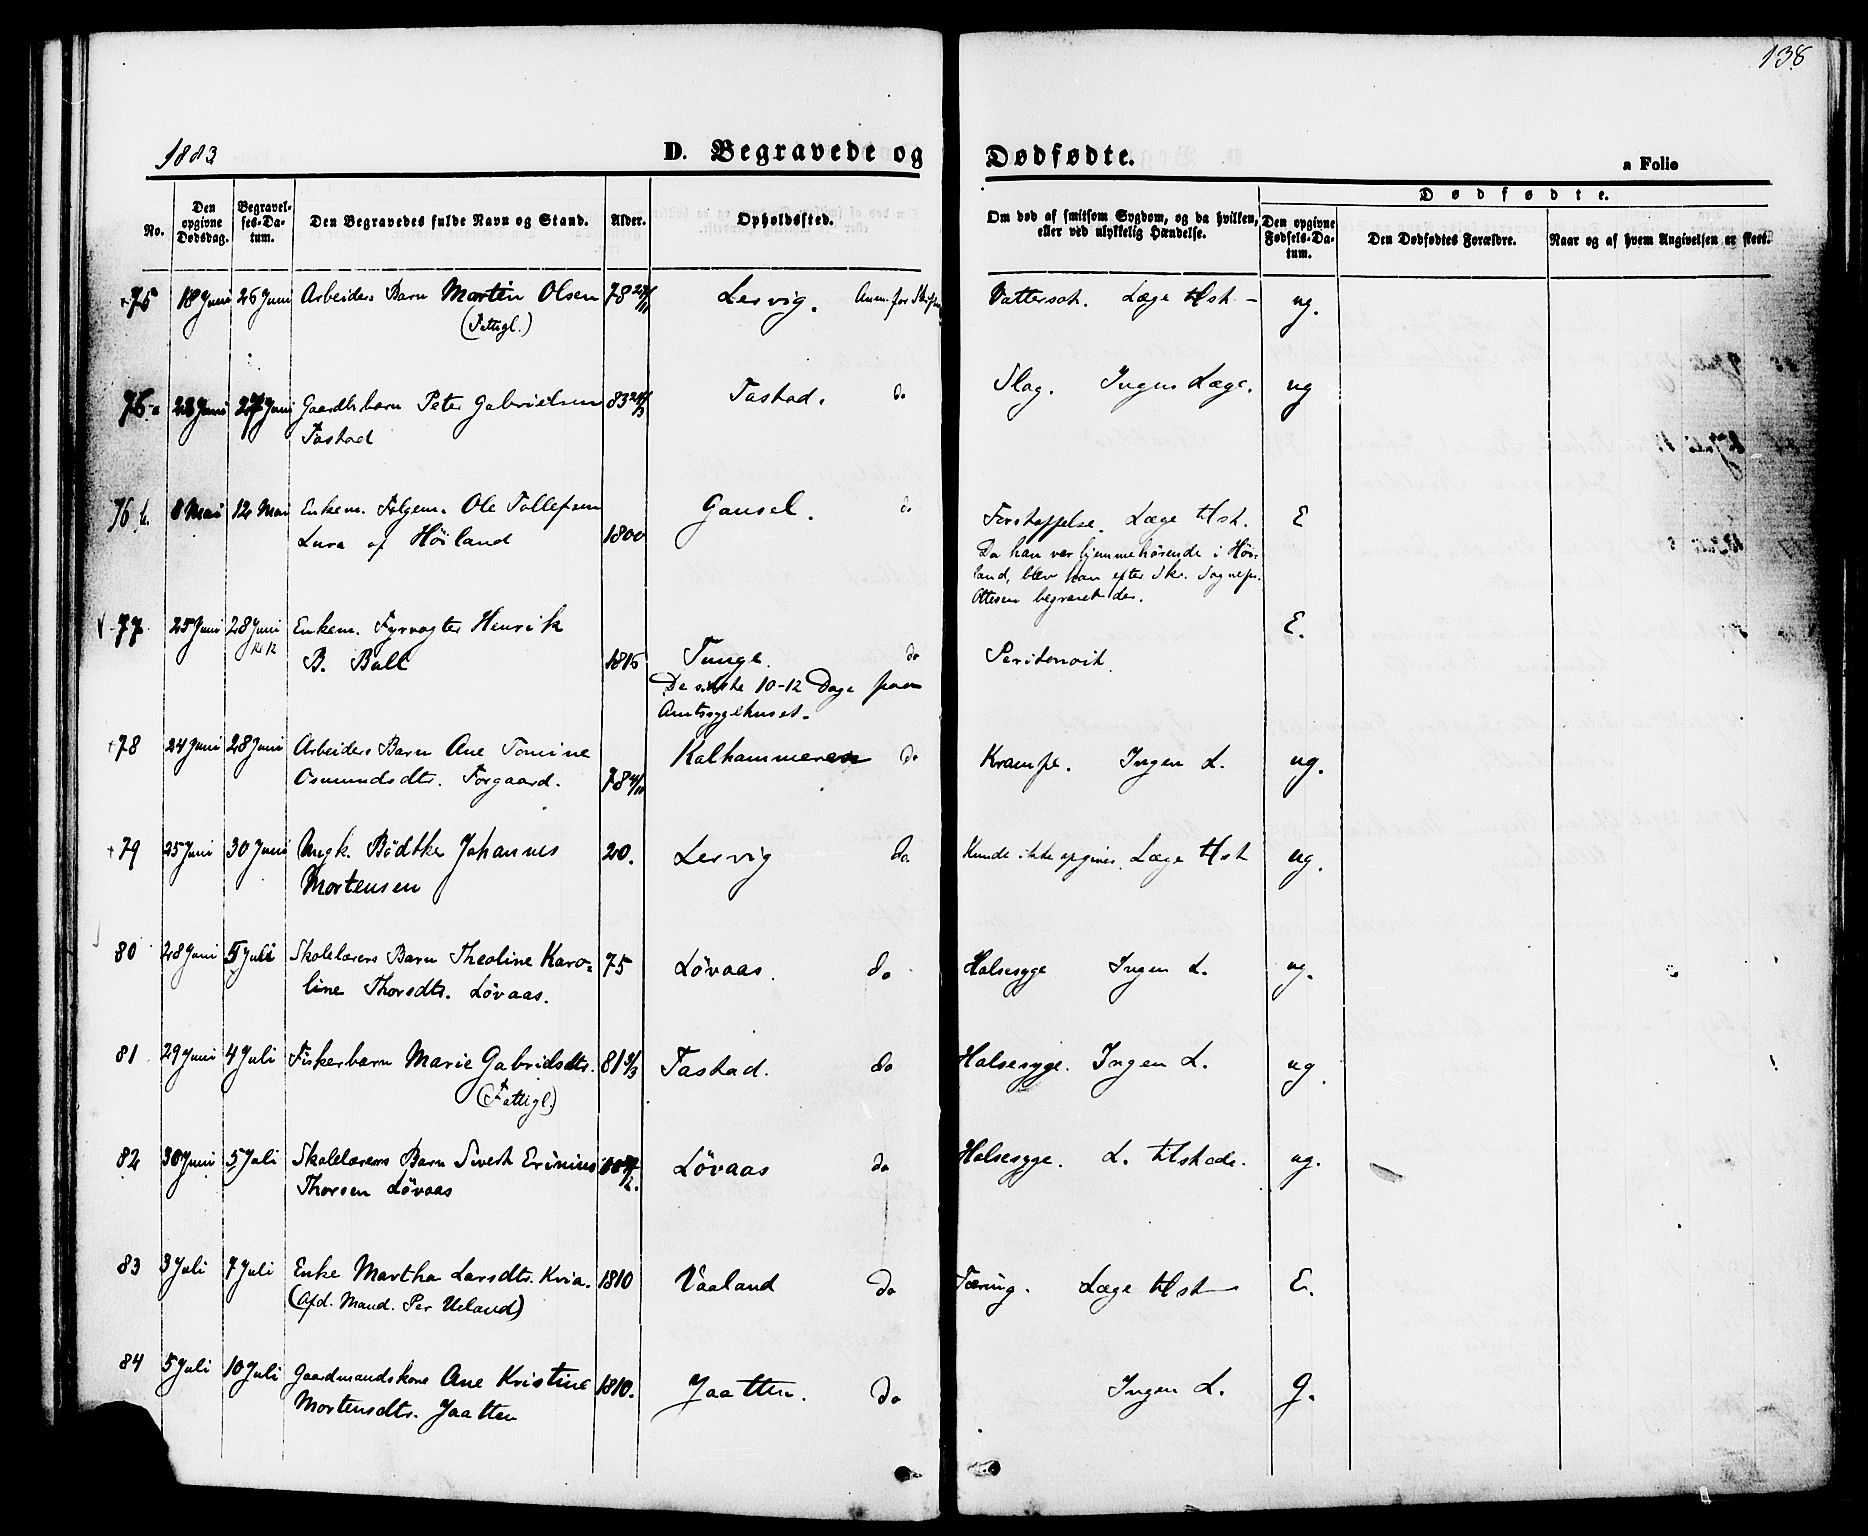 138
1883
D. Begravede og Dødfødte.
a Folio
No.
Den opgivne Dødsdag.
Begravelses-Datum.
Den Begravedes fulde Navn og Stand.
Alder.
Opholdssted.
Om død af smitsom Sygdom, og da hvilken, eller ved ulykkelig Hændelse.
Dødfødte.
Den opgivne Fødsels-Datum.
Den Dødfødtes Forældre.
Naar og af hvem Angivelsen er skeet.
75 18 Juni 26 Juni Arbeiders Barn Martin Olsen 78 Lervig. Anm. for Skifter Vattersot. Læge tilst. ug.
(Fattigl.)
76 a 27 Juni Gaardbr.barn Peter Gabrielsen 83 Tastad. do Slag. Ingen Læge. ug
Tastad
76 b. 8 Mai 12 Mai Enkem. Følgem. Ole Tollefsen 1800 Gausel. do Forstoppelse. Læge tilst. E
Lura af Høiland
Da han var hjemmehørende i Høiland, blev han efter Skr. Sognepr. Ottesen begravet der.
77 25 Juni 28 Juni Enkem. Fyrvogter Henrik
B. Ball 1816 Tunge. do Peritonoit. E.
De sidste 10-12 Dage paa
Amtssygehuset.
78 24 Juni 28 Juni Arbeiders Barn Ane Tomine Kalhammeren do Krampe. Ingen L. ug.
Osmundsdtr. Forgaard. 78 4/10
79 25 Juni 30 Juni Ungk. Bødtker Johannes 20. Lervig do. Kunde ikke opgives. Læge tilst ug.
Mortensen
80 28 Juni 5 Juli Skolelærers Barn Theoline Karo- 75 Løvaas. do Halsesyge Ingen L. ug.
line Thorsdtr. Løvaas.
81 29 Juni 4 Juli Fiskerbarn Marie Gabrielsdtr. 81 Tastad. do Halsesyge. Ingen L. ug.
(Fattigl.)
82 30 Juni 5 Juli Skolelærers Barn Sivert Erinius Løvaas do Halsesyge. L. tilstede. ug.
Thorsen Løvaas
83 3 Juli 7 Juli Enke Martha Larsdtr. Kvia. 1810 Vaaland do Tæring. Læge tilst E.
(Afd. Mand. Per Ueland)
84 5 Juli 10 Juli Gaardmandskone Ane Kristine 1810. Jaatten. do Ingen L. g.
Mortensdtr. Jaatten